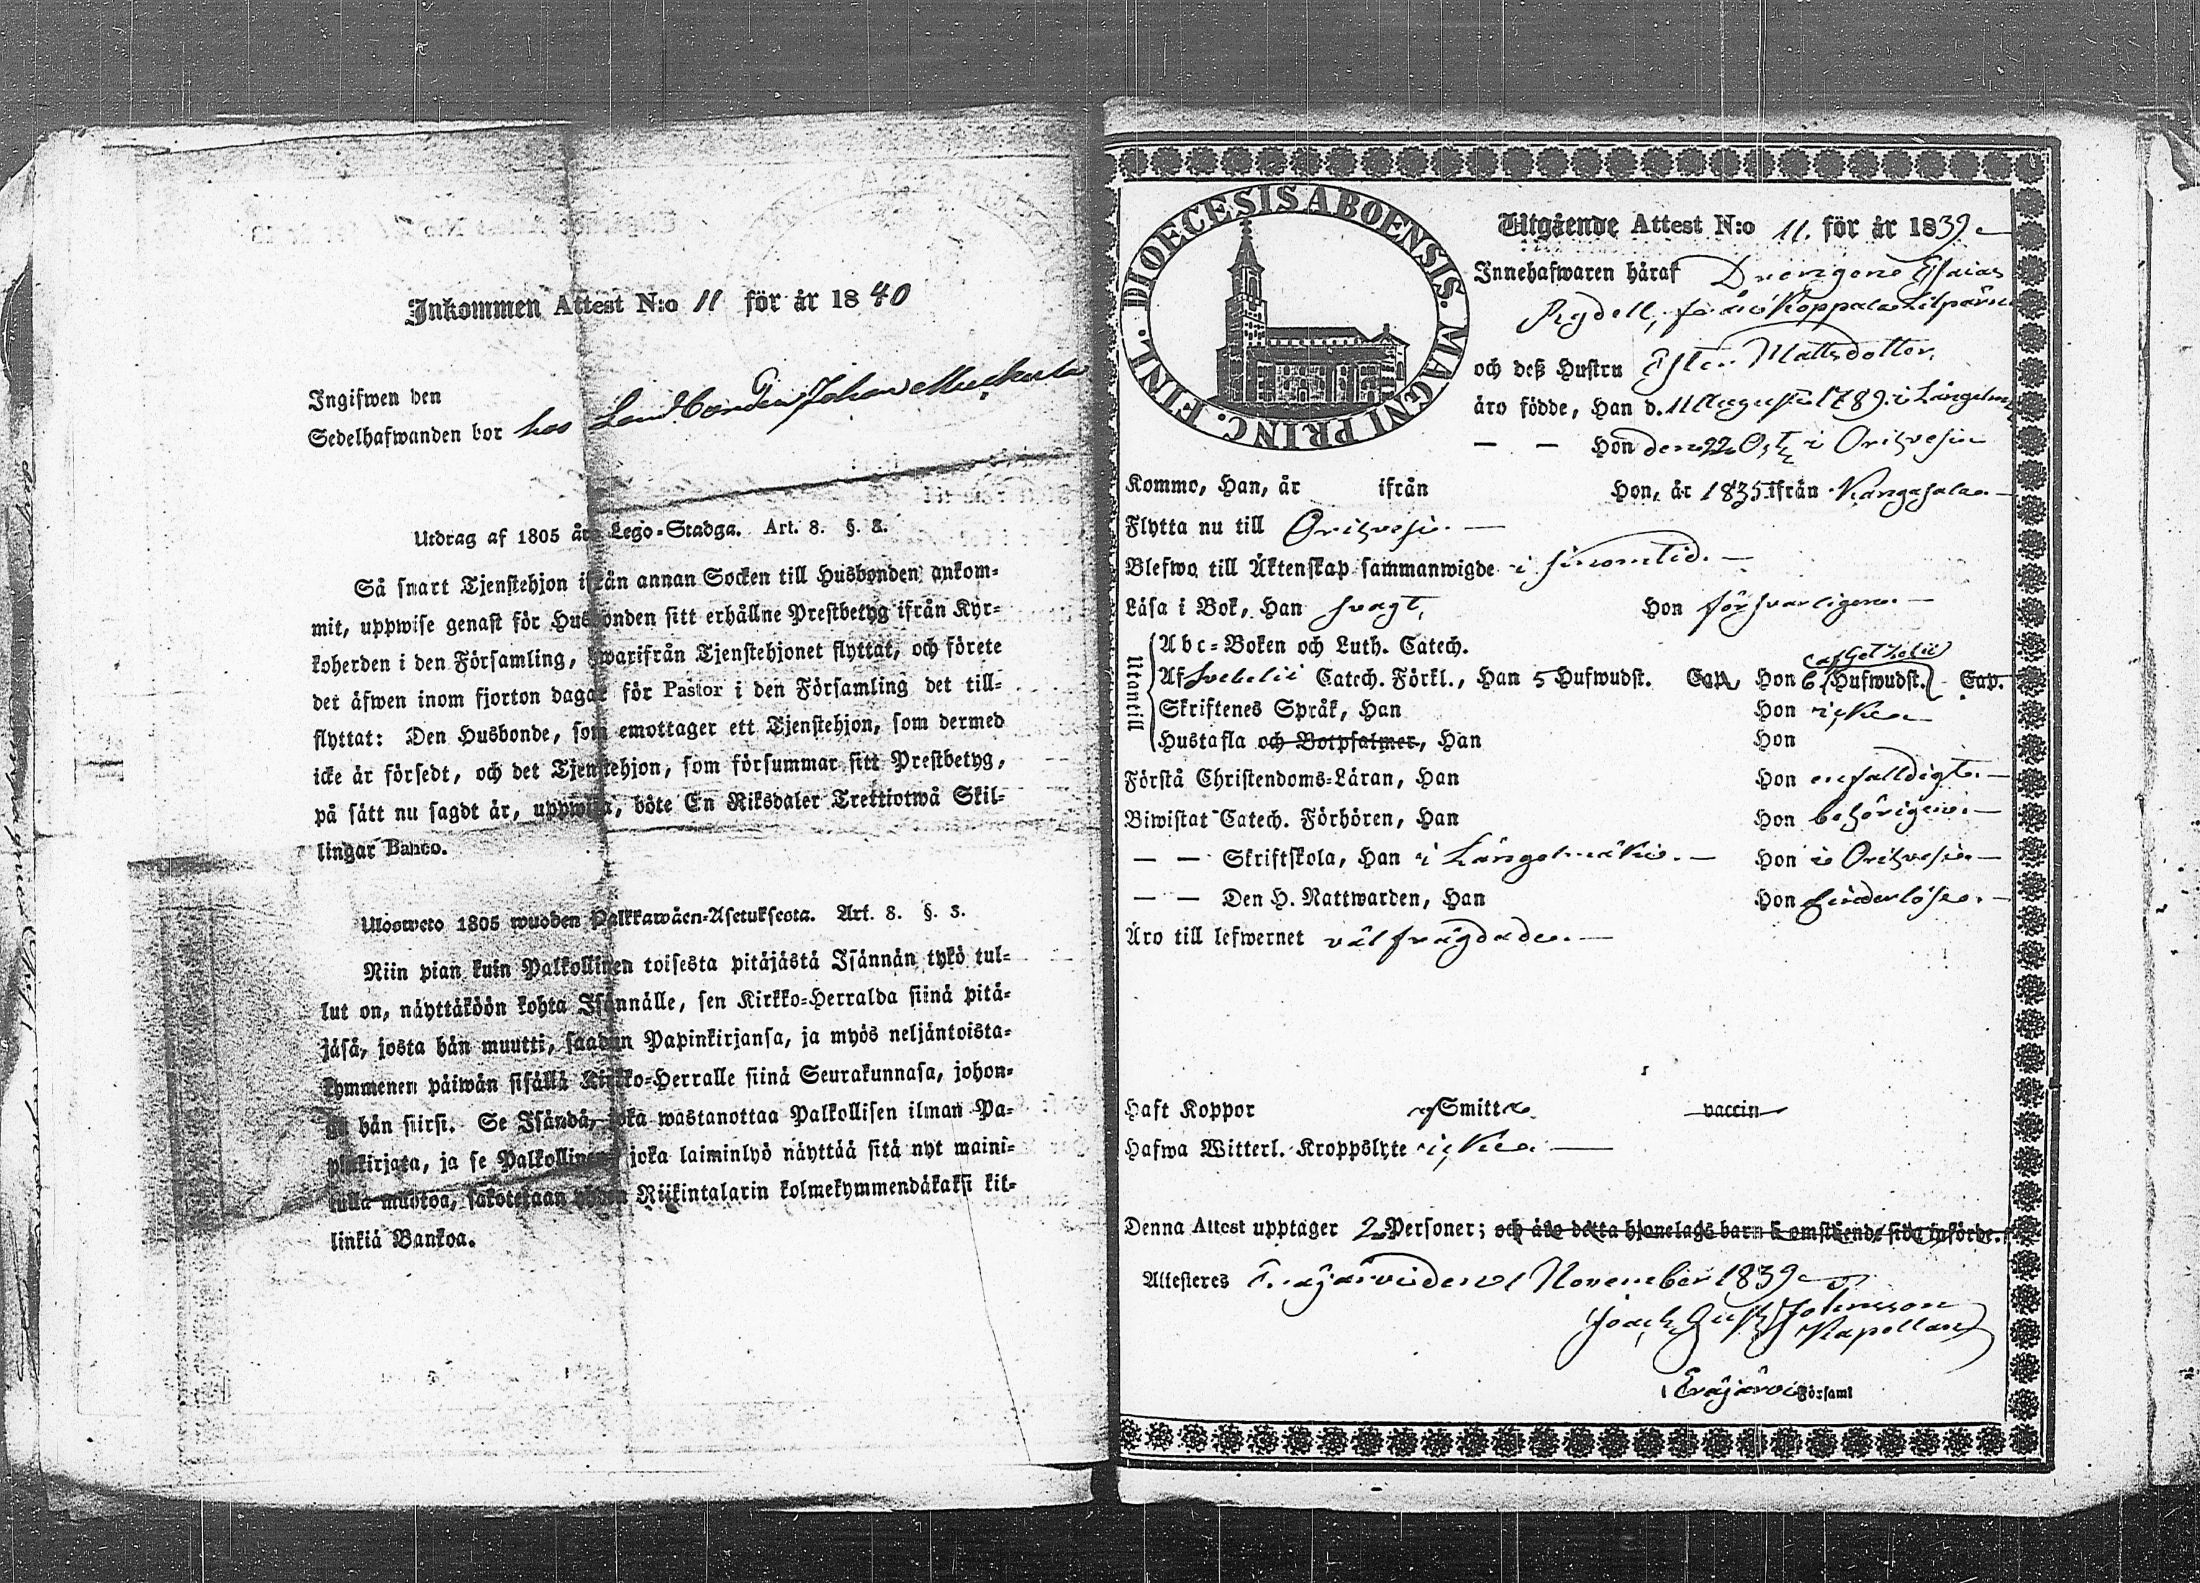 Inkommen Attest N:o 11 för år 1840
Ingifwen den
Sedelhafwanden bor hos Landbonden Johan
Utdrag af 1805 års Lego-Stadga. Art. 8. §. 3.
Så snart Tjenstehjon ifrån annan Socken till Husbonden ankom-
mit, uppwise genast för Husbonden sitt erhållne Prestbetyg ifrån Kyr-
koherden i den Församling, hwarifrån Tjenstehjonet flyttat, och förete
det äfwen inom fjorton dagar för Pastor i den Församling det till-
flyttat: Den Husbonde, som emottager ett Tjenstehjon, som dermed
icke är försedt, och det Tjenstehjon, som försummar sitt Prestbetyg,
på sätt nu sagdt är, uppwisa, böte En Riksdaler Trettiotwå Skil-
lingar Banco.
Ulosweto 1805 wuoden Palkkawäen-Asetuksesta. Art. 8. §. 3.
Niin pian kuin Palkollinen toisesta pitäjästä Isännän tykö tul-
lut on, näyttäköön kohta Isännälle, sen Kirkko-Herralda siinä pitä-
jäsä, josta hän muutti, saadun Papinkirjansa, ja myös neljäntoista-
kymmenen päiwän sisällä Kirkko-Herralle siinä Seurakunnasa, johon-
ga hän siirsi. Se Isändä, joka wastanottaa Palkollisen ilman Pa-
pinkirjata, ja se Palkollinen, joka laiminlyö näyttää sitä nyt maini-
tulla muotoa, sakotetaan yhden Riikintalarin kolmekymmendäkaksi kil-
linkiä Bankoa.
DIOECESIS ABOENSIS. MAGNI PRINC. FINL.
Utgående Attest N:o 11. för år 1839
Innehafwaren häraf Drengen Esaias
Rydell, från Koppala
och deß Hustru Ester Mattsdotter,
äro födde, Han d. 11 Augusti 1789. i Längelm
— — Hon den 22 i Orihvesi
Komme, Han, år ifrån Hon, år 1835 ifrån Kangasala. —
Flytta nu till Orihvesi. —
Blefwo till Äktenskap sammanwigde i sinom tid. —
Läsa i Bok, Han svagt, Hon försvarligen. —
Utantill
Abc-Boken och Luth. Catech.
Af Svebelii Catech. Förkl., Han 5 Hufwudst. Cap. Hon 6 Hufwudst. Cap.
Skriftenes Språk, Han Hon icke. —
Hustafla och Botpsalmer, Han Hon
Förstå Christendoms-Läran, Han Hon enfalldigt. —
Biwistat Catech. Förhören, Han Hon behörigen. —
— — Skriftskola, Han i Längelmäki. — Hon i Orihvesi —
— — Den H. Nattwarden, Han Hon hinderlöse. —
Äro till lefwernet välfrägdade. —
Haft Koppor Smitt vaccin
Hafwa Witterl. Kroppslyte icke. —
Denna Attest upptager 2 Personer; och äro detta hjonelags barn å omstående sida införde.
Attesteres Eräjärvi den 1 November 1839
Joach. Gust. Johnsson
Kapellan
i Eräjärvi Församl